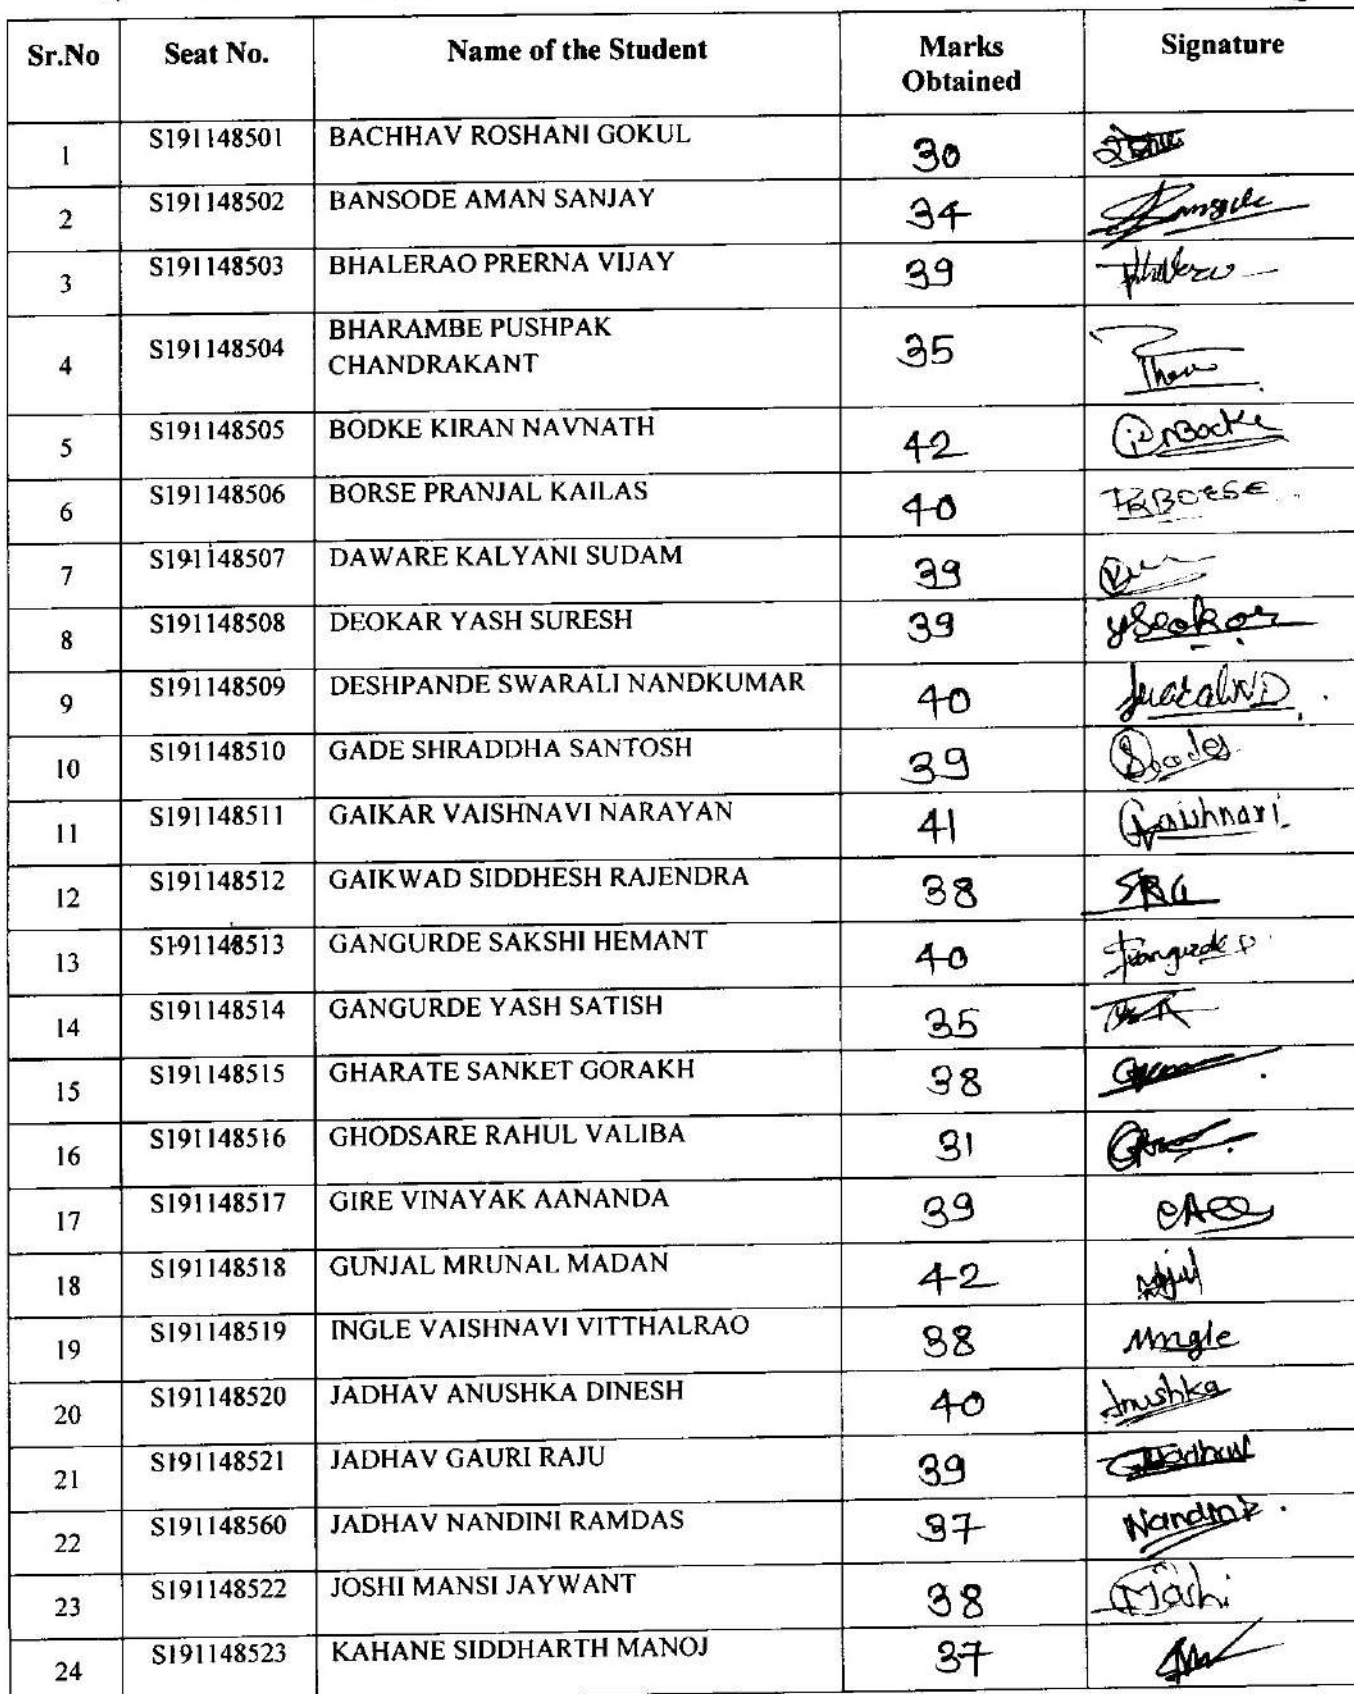 Sr.No Seat No. Name of the Student Marks Obtained Signature
1 S191148501 BACHHAV ROSHANI GOKUL 30
2 S191148502 BANSODE AMAN SANJAY 34
3 S191148503 BHALERAO PRERNA VIJAY 39
4 S191148504 BHARAMBE PUSHPAK CHANDRAKANT 35
5 S191148505 BODKE KIRAN NAVNATH 42
6 S191148506 BORSE PRANJAL KAILAS 40
7 S191148507 DAWARE KALYANI SUDAM 39
8 S191148508 DEOKAR YASH SURESH 39
9 S191148509 DESHPANDE SWARALI NANDKUMAR 40
10 S191148510 GADE SHRADDHA SANTOSH 39
11 S191148511 GAIKAR VAISHNAVI NARAYAN 41
12 S191148512 GAIKWAD SIDDHESH RAJENDRA 38 SRG
13 S191148513 GANGURDE SAKSHI HEMANT 40
14 S191148514 GANGURDE YASH SATISH 35
15 S191148515 GHARATE SANKET GORAKH 38
16 S191148516 GHODSARE RAHUL VALIBA 31
17 S191148517 GIRE VINAYAK AANANDA 39
18 S191148518 GUNJAL MRUNAL MADAN 42
19 S191148519 INGLE VAISHNAVI VITTHALRAO 38
20 S191148520 JADHAV ANUSHKA DINESH 40 Anushka
21 S191148521 JADHAV GAURI RAJU 39
22 S191148560 JADHAV NANDINI RAMDAS 37
23 S191148522 JOSHI MANSI JAYWANT 38
24 S191148523 KAHANE SIDDHARTH MANOJ 37